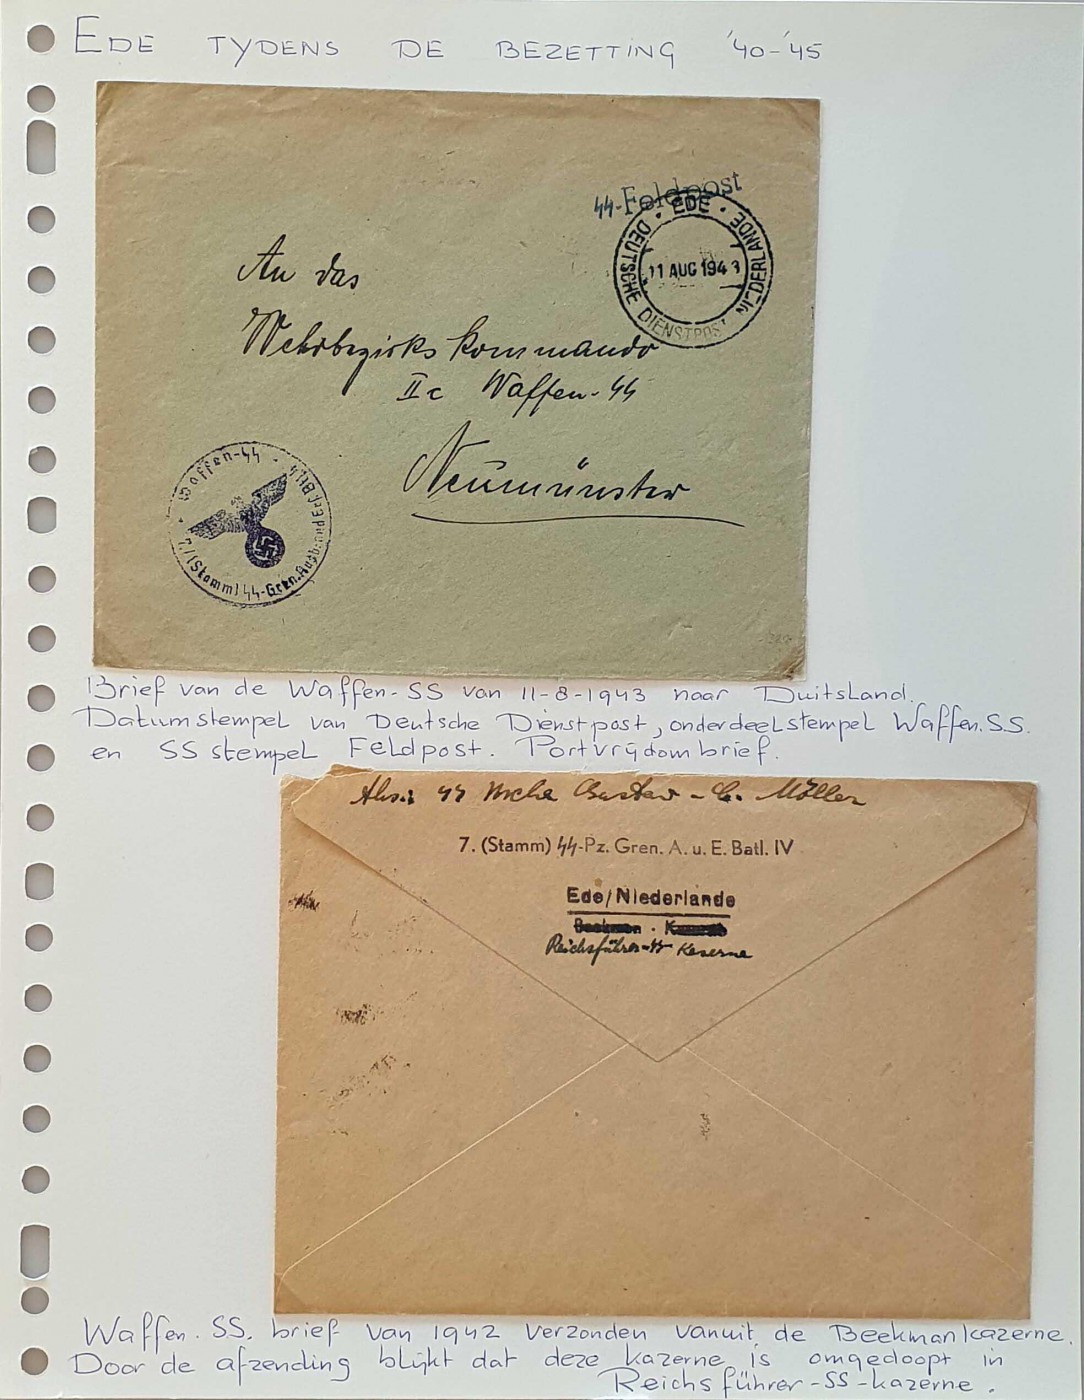 EDE TYDENS DE BEZETTING '40-'45
SS-Feldpost
· EDE ·
DEUTSCHE DIENSTPOST NIEDERLANDE
11 AUG 1943
An das
Wehrbezirks Kommando
IIc Waffen-SS
Neumünster
Waffen-SS
7./(Stamm) SS-Gren.Ausb. und Ers. Btl.
Brief van de Waffen-SS van 11-8-1943 naar Duitsland.
Datumstempel van Deutsche Dienstpost, onderdeelstempel Waffen.S.S.
en SS stempel Feldpost. Portvrijdombrief.
Abs.: SS Gustav Möller
7. (Stamm) SS-Pz. Gren. A. u. E. Batl. IV
Ede/Niederlande
Beekman - Kaserne
Reichsführer-SS Kaserne
Waffen. SS. brief van 1942 verzonden vanuit de Beekmankazerne.
Door de afzending blijkt dat deze kazerne is omgedoopt in
Reichsführer-SS-kazerne.